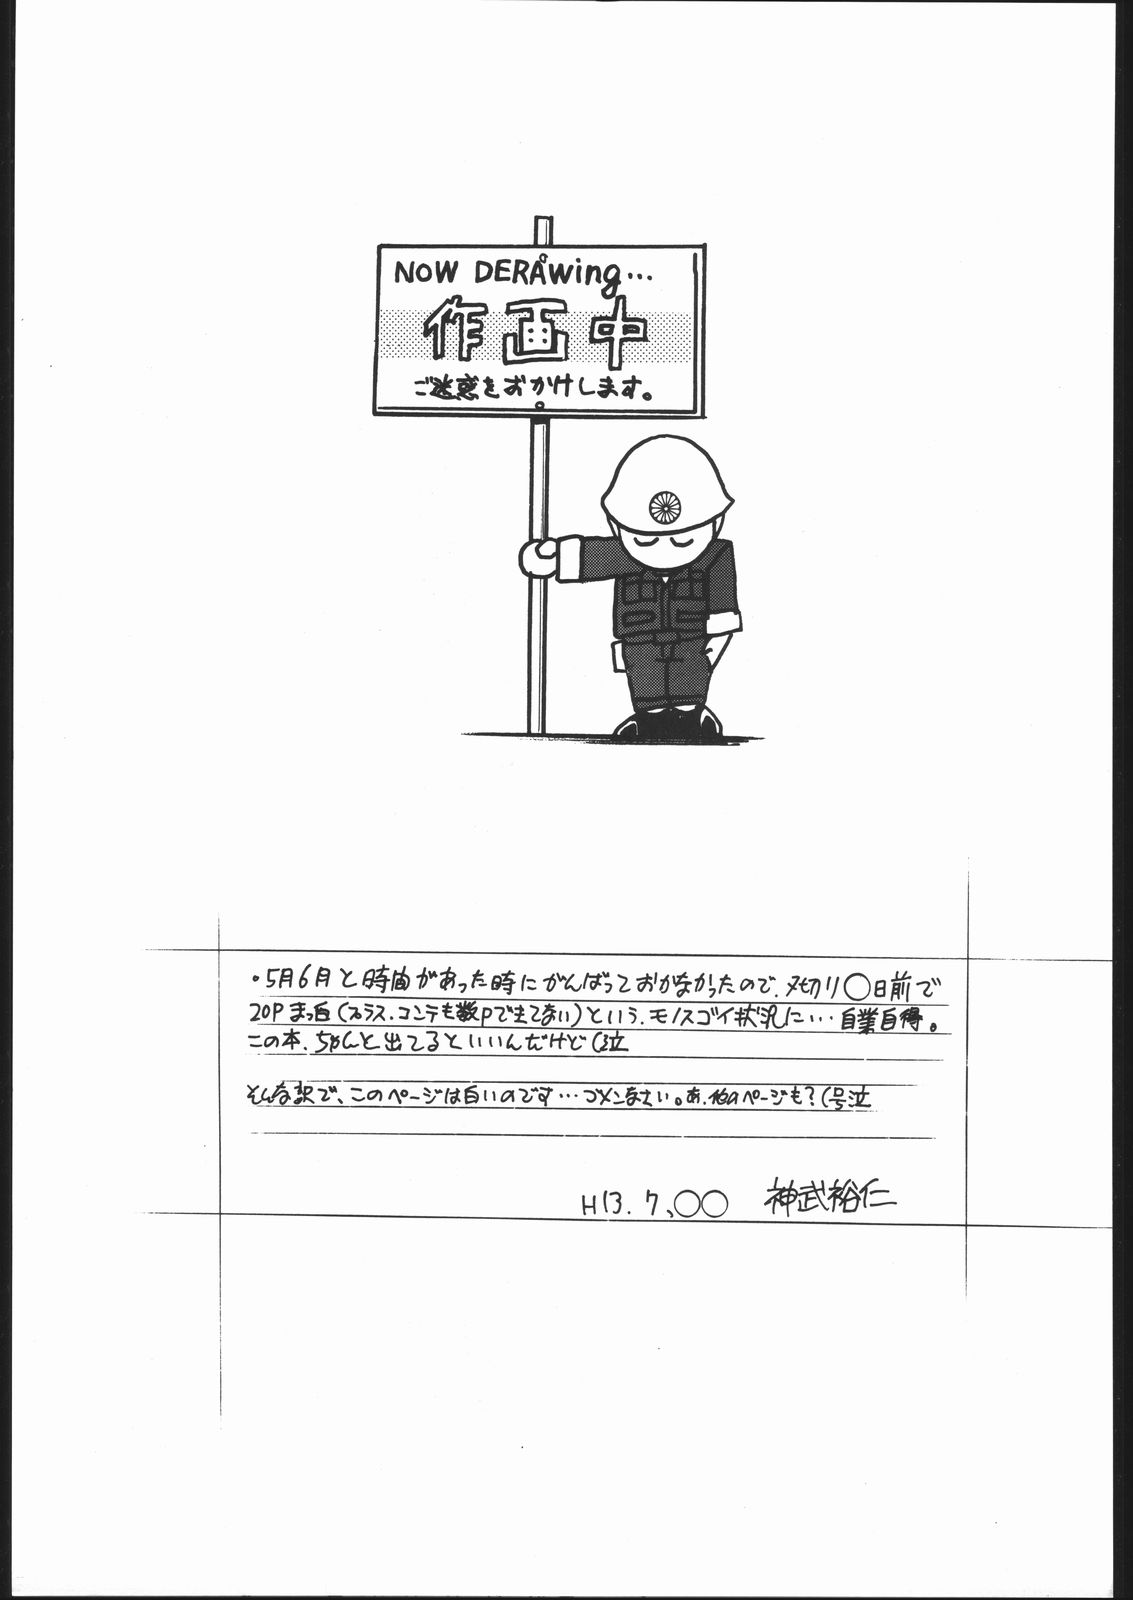 NOW DERAwing…
作画中
ご迷惑をおかけします。
・5月6月と時間があった時にがんばっておかなかったので、〆切リ〇日前で
20Pまっ白(プラス、コンテも数Pできてない)という、モノスゴイ状況に…自業自得。
この本、ちゃんと出てるといいんだけど(泣
そんな訳で、このページは白いのです…ゴメンなさい。あ、他のページも?(号泣
H13.7、〇〇 神武裕仁